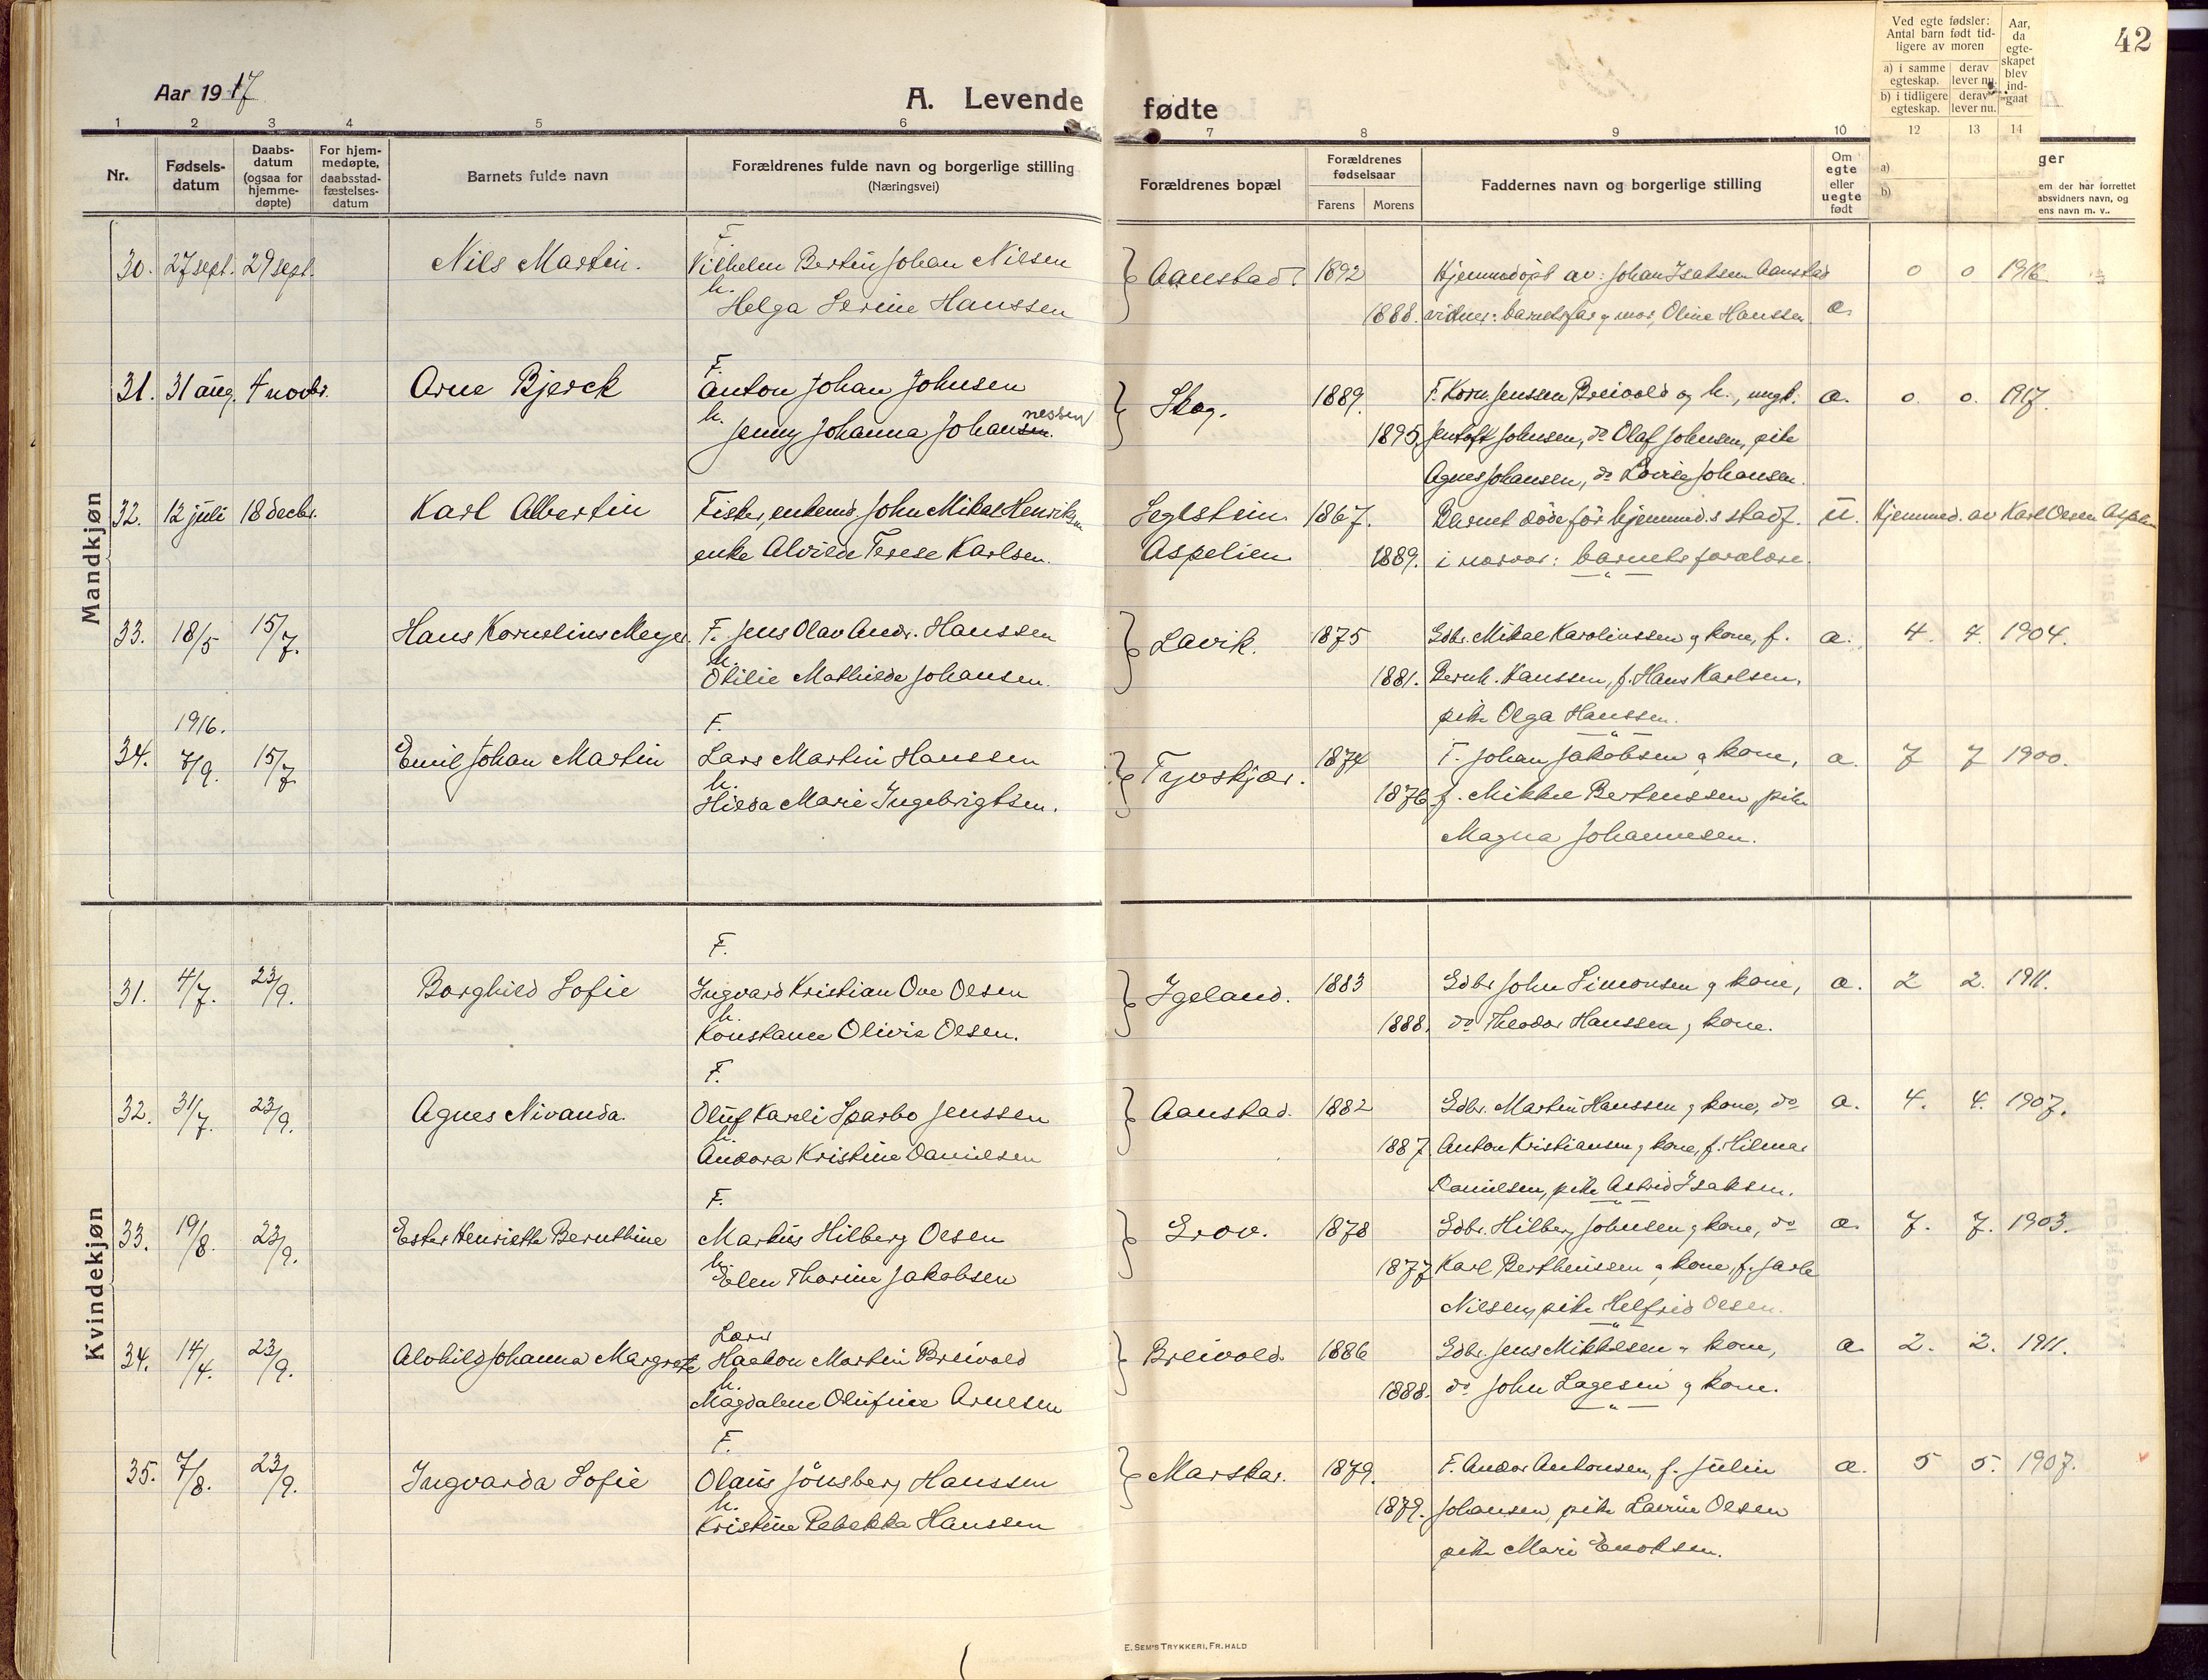 Aar 1917
A. Levende fødte
42
Ved egte fødsler: Antal barn født tidligere av moren
a) i samme egteskap.
derav lever nu.
b) i tidligere egteskap.
derav lever nu.
Aar, da egteskapet blev indgaat
1 2 3 4 5 6 7 8 9 10 12 13 14
Nr.
Fødselsdatum
Daabsdatum (ogsaa for hjemmedøpte)
For hjemmedøpte, daabsstadfæstelsesdatum
Barnets fulde navn
Forældrenes fulde navn og borgerlige stilling
(Næringsvei)
Forældrenes bopæl
Forældrenes fødselsaar
Farens Morens
Faddernes navn og borgerlige stilling
Om egte eller uegte født
a)
b)
ger
em der har forrettet
absvidners navn, og
ens navn m. v..
Mandkjøn
F.
30. 27 sept. 29 sept. Nils Martin. Vilhelm Bertin Johan Nilsen Aanstad 1892 Hjemmedøpt av: Johan Isaksen Aanstad 0 0 1916
h. Helga Serine Hanssen 1888. vidner: barnets far og mor, Oline Hanssen e.
F.
31. 31 aug. 4 novbr. Arne Bjerck Anton Johan Johnsen Skog. 1889. F. Korn. Jenssen Breivold og h., ungk. e. 0. 0. 1917.
h. Jenny Johanna Johansen. nessen 1895. Jentoft Johnsen, do Olaf Johnsen, pike
Agnes Johansen, do Lovise Johansen.
32. 12 juli 18 decbr. Karl Albertin Fisker, enkemd. John Mikal Henriksen Seglstein 1867. Barnet døde før hjemmed.s stadf. u. Hjemmed. av Karl Olsen Aspelien
enke Alvilde Terese Karlsen. Aspelien 1889. i nærvær: barnets forældre.
33. 18/5 15/7. Hans Kornelius Meyer. F. Jens Olav Andr. Hanssen Lavik. 1875 Gdbr. Mikal Karolinssen og kone, f. e. 4. 4. 1904.
h. Otilie Mathilde Johansen. 1881. Bernh. Hanssen, f. Hans Karlsen,
pike Olga Hanssen.
1916. F.
34. 7/9. 15/7 Emil Johan Martin Lars Martin Hanssen Tyvskjær. 1874 F. Johan Jakobsen og kone, e. 7 7 1900.
h. Hilda Marie Ingebrigtsen. 1876 f. Mikkel Bertenssen, pike
Magna Johannesen.
Kvindekjøn
F.
31. 4/7. 23/9. Borghild Sofie Ingvard Kristian Ove Olsen Igeland. 1883 Gdbr John Simonsen og kone, e. 2 2. 1911.
h. Konstance Olivia Olsen. 1888. do Theodor Hanssen og kone.
F.
32. 31/7. 23/9. Agnes Nivanda. Oluf Kareli Sparbo Jenssen Aanstad. 1882 Gdbr. Martin Hanssen og kone, do e. 4. 4. 1907.
h. Andora Kristine Danielsen 1887 Anton Kristiansen og kone, f. Hilmar
Danielsen, pike Astrid Isaksen.
F.
33. 19/8. 23/9. Ester Henriette Bernthine Markus Hilberg Olsen Grov. 1878 Gdbr. Hilberg Johnsen og kone, do e. 7. 7. 1903.
h. Elen Thorine Jakobsen 1877 Karl Berthinssen og kone, f. Jarle
Nilsen, pike Helfrid Olsen.
Lærer
34. 14/4. 23/9. Alvhild Johanna Margrete Haakon Martin Breivold Breivold. 1886 Gdbr. Jens Mikkelsen og kone, e. 2. 2. 1911.
h. Magdalene Olufine Arnesen 1888. do John Lagesen og kone.
F.
35. 7/8. 23/9. Ingvarda Sofie Olaus Jönsberg Hanssen Marskar. 1879. F. Andor Antonsen, f. Julin e. 5 5. 1907.
h. Kristine Rebekka Hanssen 1879. Johansen, pike Lavrine Olsen
pike Mari Enoksen.
E. SEM'S TRYKKERI, FR.HALD